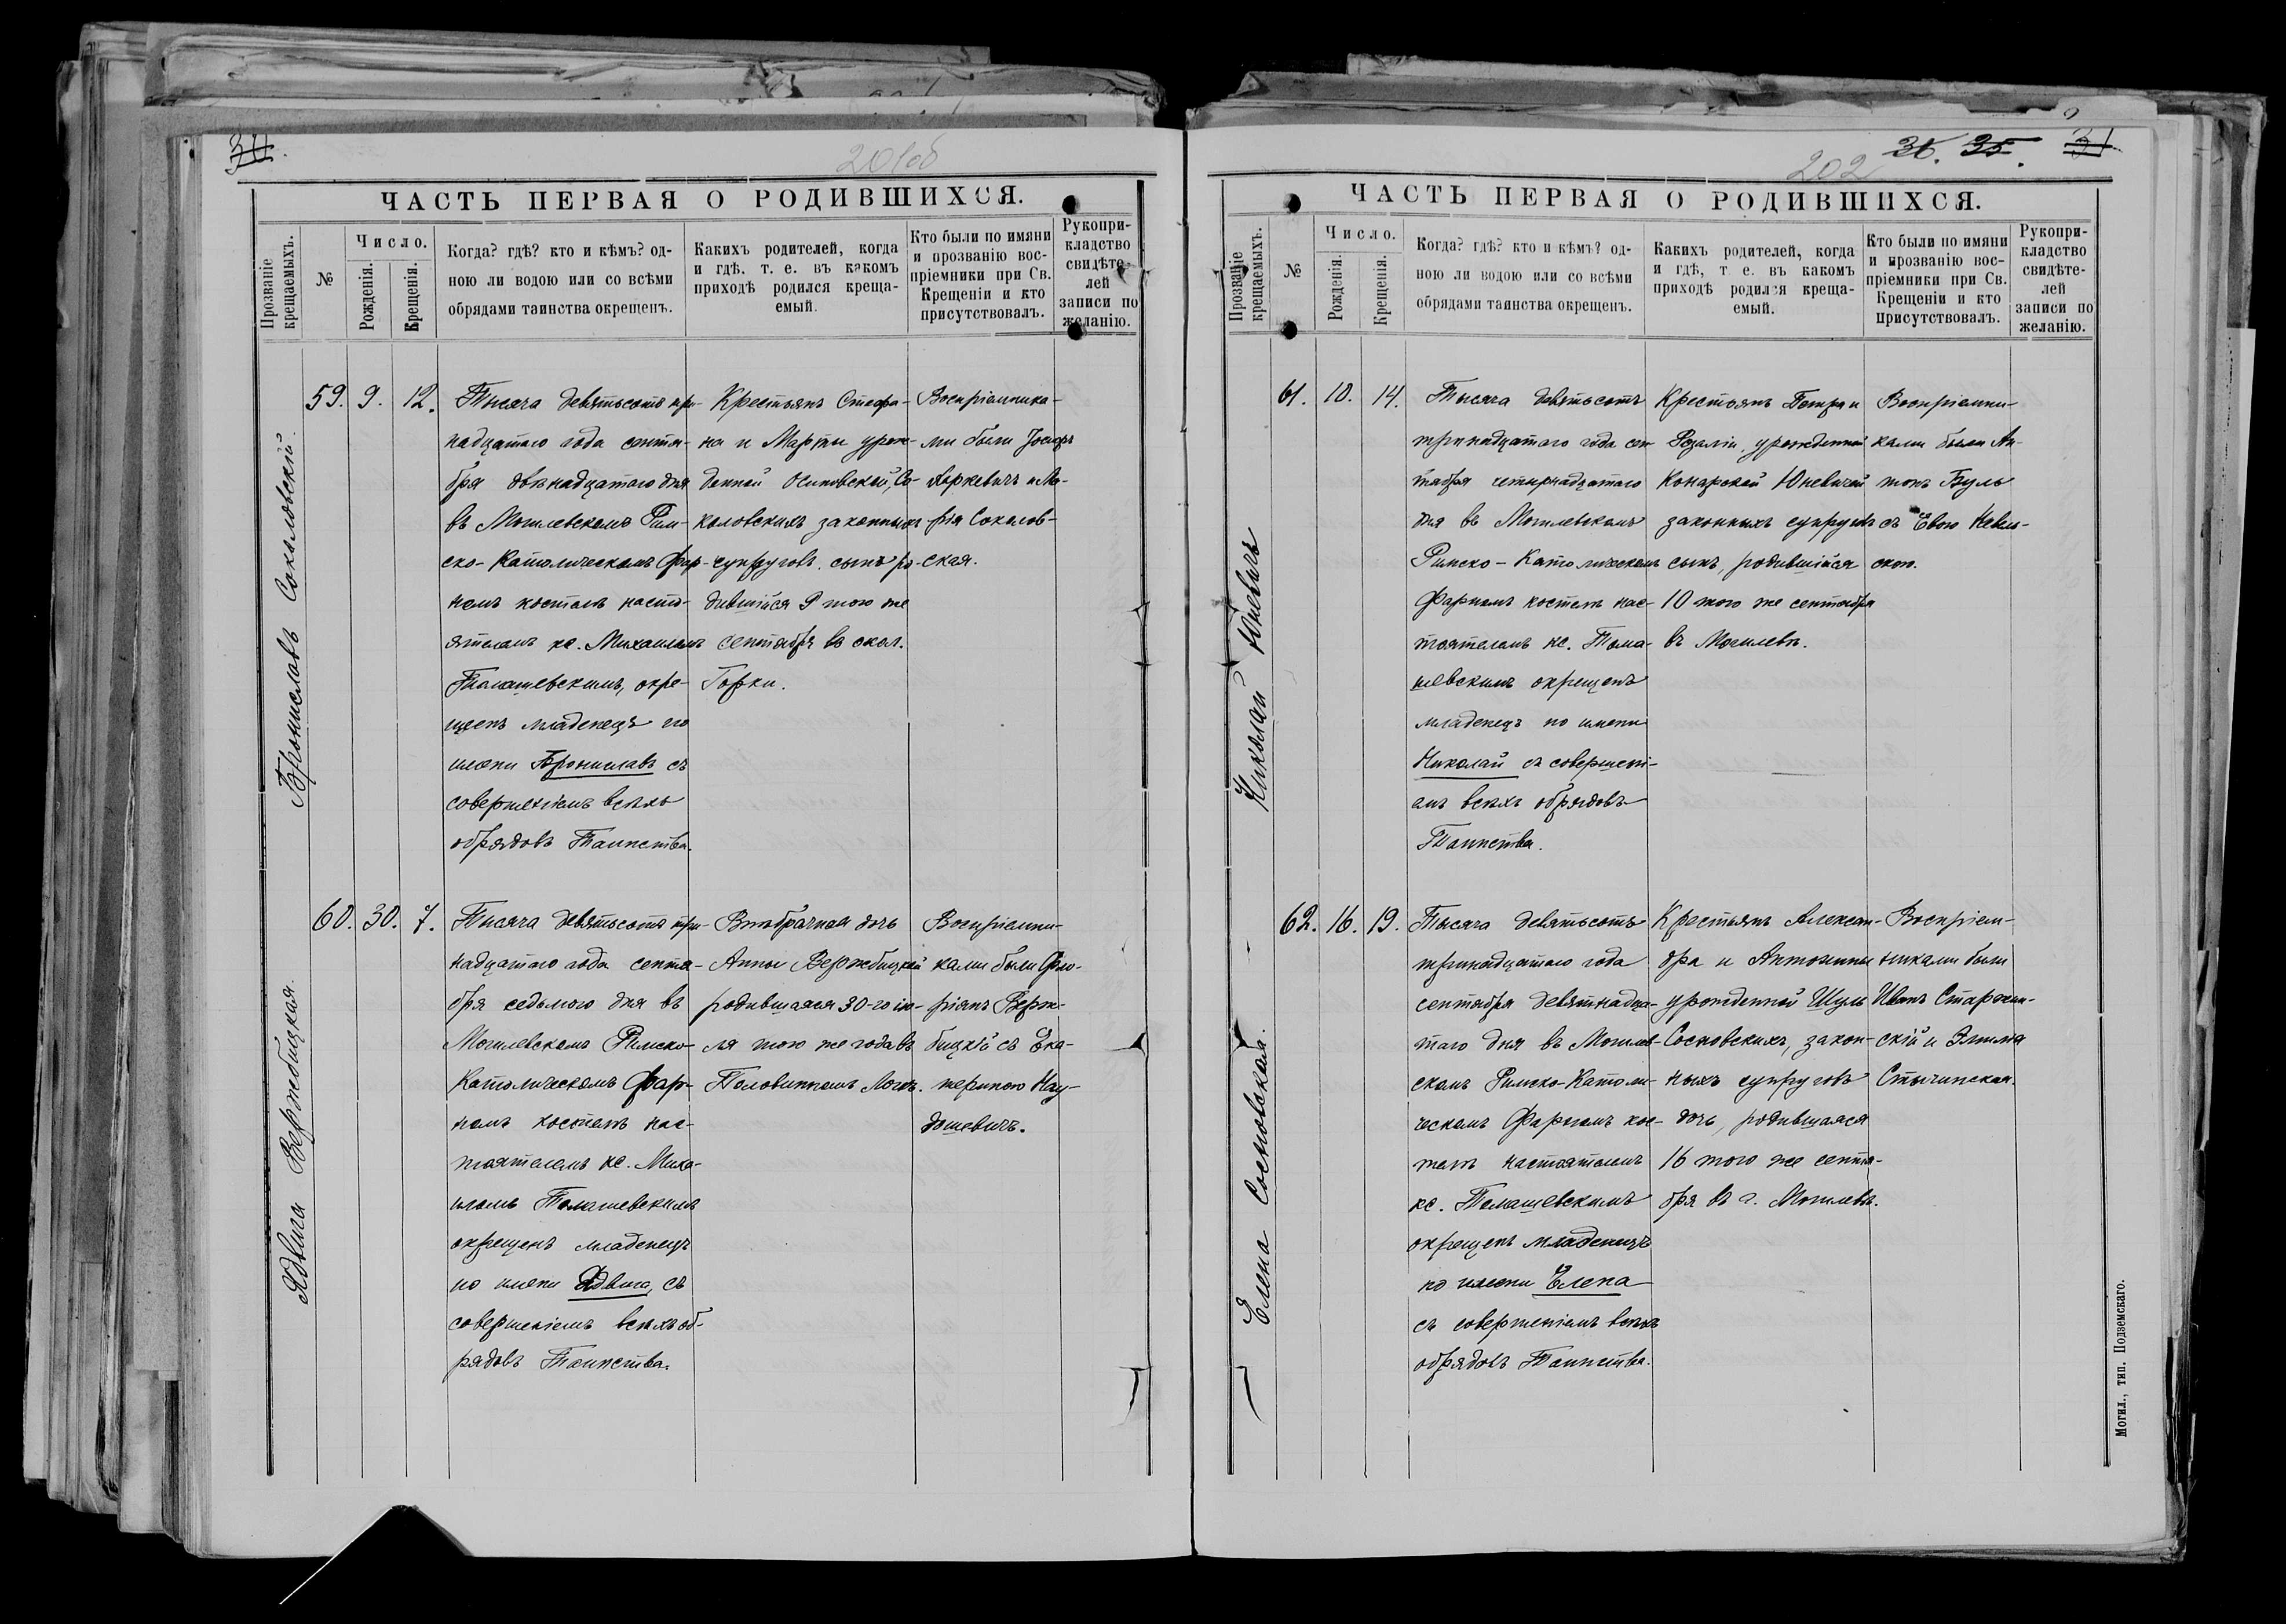 30.
201об
ЧАСТЬ ПЕРВАЯ О РОДИВШИХСЯ.
Прозваніе крещаемыхъ.
№
Число.
Рожденія.
Крещенія.
Когда? гдѣ? кто и кѣмъ? од-
ною ли водою или со всѣми
обрядами таинства окрещенъ.
Какихъ родителей, когда
и гдѣ. т. е. въ какомъ
приходѣ родился креща-
емый.
Кто были по имяни
и прозванію вос-
пріемники при Св.
Крещеніи и кто
присутствовалъ.
Рукопри-
кладство
свидѣте-
лей
записи по
желанію.
Брониславъ Соколовскій.
59. 9. 12.
Тысяча девятьсотъ три-
надцатаго года сентя-
бря двѣнадцатаго дня
въ Могилевскомъ Рим-
ско-Католическомъ Фар-
номъ костелѣ насто-
ятелемъ кс. Михаиломъ
Томашевскимъ, окре-
щенъ младенецъ по
имени Брониславъ съ
совершеніемъ всѣхъ
обрядовъ Таинства.
Крестьянъ Стефа-
на и Марты урож-
денной Осиповской, Со-
коловскихъ законныхъ
супруговъ. сынъ ро-
дившійся 9 того же
сентября въ окол.
Горки.
Воспріемника-
ми были Іосифъ
Яркевичъ и Ма-
рія Соколов-
ская.
Ядвига Вержбицкая.
60. 30. 7.
Тысяча девятьсотъ три-
надцатаго года сентя-
бря седьмого дня въ
Могилевскомъ Римско-
Католическомъ Фар-
номъ костелѣ нас-
тоятелемъ кс. Миха-
иломъ Томашевскимъ
окрещенъ младенецъ
по имени Ядвига, съ
совершеніемъ всѣхъ об-
рядовъ Таинства.
Внѣбрачная дочь
Анны Вержбицкой
родившаяся 30-го ію-
ля того же года въ
Половинномъ Логѣ.
Воспріемни-
ками были Фло-
ріянъ Верж-
бицкій съ Ека-
териною Нау-
дошевичъ.
202
36. 35. 31
ЧАСТЬ ПЕРВАЯ О РОДИВШИХСЯ.
Прозваніе крещаемыхъ.
№
Число.
Рожденія.
Крещенія.
Когда? гдѣ? кто и кѣмъ? од-
ною ли водою или со всѣми
обрядами таинства окрещенъ.
Какихъ родителей, когда
и гдѣ, т. е. въ какомъ
приходѣ родился креща-
емый.
Кто были по имяни
и прозванію вос-
пріемники при Св.
Крещеніи и кто
присутствовалъ.
Рукопри-
кладство
свидѣте-
лей
записи по
желанію.
Николай Юневичъ
61. 10. 14.
Тысяча девятьсотъ
тринадцатаго года сен
тября четырнадцатаго
дня въ Могилевскомъ
Римско-Католическомъ
Фарномъ костелѣ нас-
тоятелемъ кс. Тома-
шевскимъ окрещенъ
младенецъ по имени
Николай съ совершені-
емъ всѣхъ обрядовъ
Таинства.
Крестьянъ Петра и
Розаліи, урожденной
Конарской Юневичей
законныхъ супруговъ
сынъ, родившійся
10 того же сентября
въ Могилевѣ.
Воспріемни-
ками были Ан-
тонъ Буль
съ Евою
ской.
Елена Сосновская.
62. 16. 19.
Тысяча девятьсотъ
тринадцатаго года
сентября девятнадца-
таго дня въ Могилев-
скомъ Римско-Католи-
ческомъ Фарномъ кос-
телѣ настоятелемъ
кс. Томашевскимъ
окрещенъ младенецъ
по имени Елена
съ совершеніемъ всѣхъ
обрядовъ Таинства.
Крестьянъ Алексан-
дра и Антонины
урожденной Шуль
Сосновскихъ, закон-
ныхъ супруговъ
дочь, родившаяся
16 того же сентя-
бря въ г. Могилевѣ.
Воспріем-
никами были
Иванъ Старжин-
скій и
Стычинская.
Могил., тип. Подземскаго.